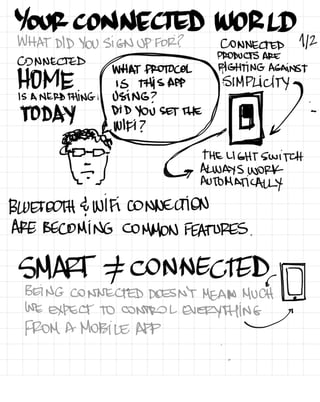 YOUR CONNECTED WORLD
WHAT DID YOU SIGN UP FOR?
1/2
CONNECTED
HOME
IS A NERD THING
TODAY
WHAT PROTOCOL
IS THIS APP
USING?
DID YOU SET THE
WIFI?
CONNECTED
PRODUCTS ARE
FIGHTING AGAINST
SIMPLICITY
THE LIGHT SWITCH
ALWAYS WORK
AUTOMATICALLY
BLUETOOTH & WIFI CONNECTION
ARE BECOMING COMMON FEATURES.
SMART ≠ CONNECTED
BEING CONNECTED DOESN'T MEAN MUCH
WE EXPECT TO CONTROL EVERYTHING
FROM A MOBILE APP